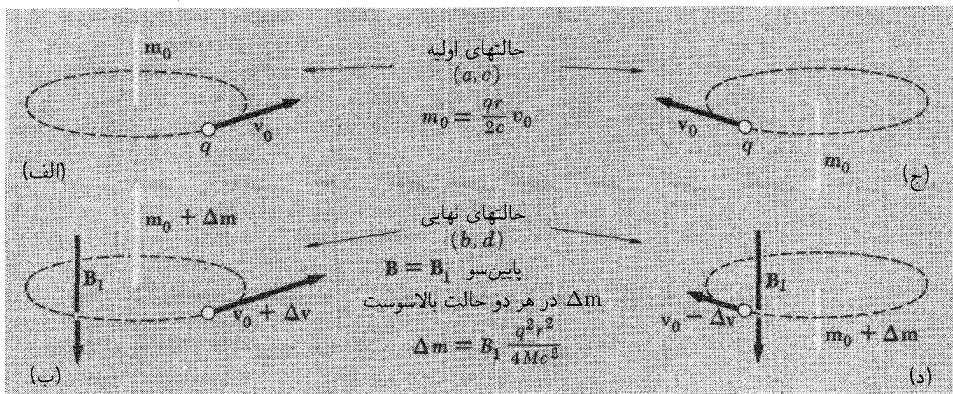 m₀
v₀
q
(الف)
حالتهای اولیه
(a, c)
m₀ = qr/2c v₀
v₀
q
m₀
(ج)
m₀ + Δm
B₁
v₀ + Δv
(ب)
حالتهای نهایی
(b, d)
پایین‌سو B = B₁
Δm در هر دو حالت بالاسوست
Δm = B₁ q²r²/4Mc²
B₁
v₀ − Δv
m₀ + Δm
(د)